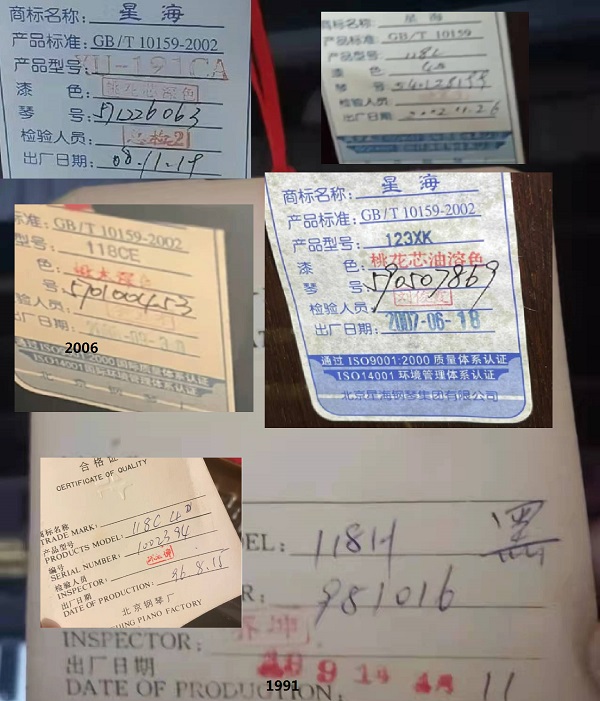 商标名称: 星海
产品标准: GB/T 10159-2002
产品型号: XU-191CA
漆 色: 桃花芯溶色
琴 号: 571226063
检验人员: 总检2
出厂日期: 08.11.19
商标名称: 星海
产品标准: GB/T 10159
产品型号: 118L
漆 色:
琴 号:
检验人员:
出厂日期: 2002.11.26
标准: GB/T 10159-2002
型号: 118CE
色:
号: 570100453
人员:
出厂日期:
2006
商标名称: 星海
产品标准: GB/T 10159-2002
产品型号: 123XK
漆 色: 桃花芯油溶色
琴 号: 590507869
检验人员:
出厂日期: 2007-06-18
通过 ISO9001:2000 质量体系认证
ISO14001 环境管理体系认证
北京星海钢琴集团有限公司
ISO9001:2000 国际质量体系认证
ISO14001 国际环境管理体系认证
合格证
CERTIFICATE OF QUALITY
商标名称
TRADE MARK:
产品型号
PRODUCTS MODEL: 118C
编号
SERIAL NUMBER: 1002394
检验人员
INSPECTOR:
出厂日期
DATE OF PRODUCTION: 96.8.15
北京钢琴厂
JING PIANO FACTORY
EL: 118H 黑
R: 981016
INSPECTOR:
出厂日期
DATE OF PRODUCTION: 11
1991